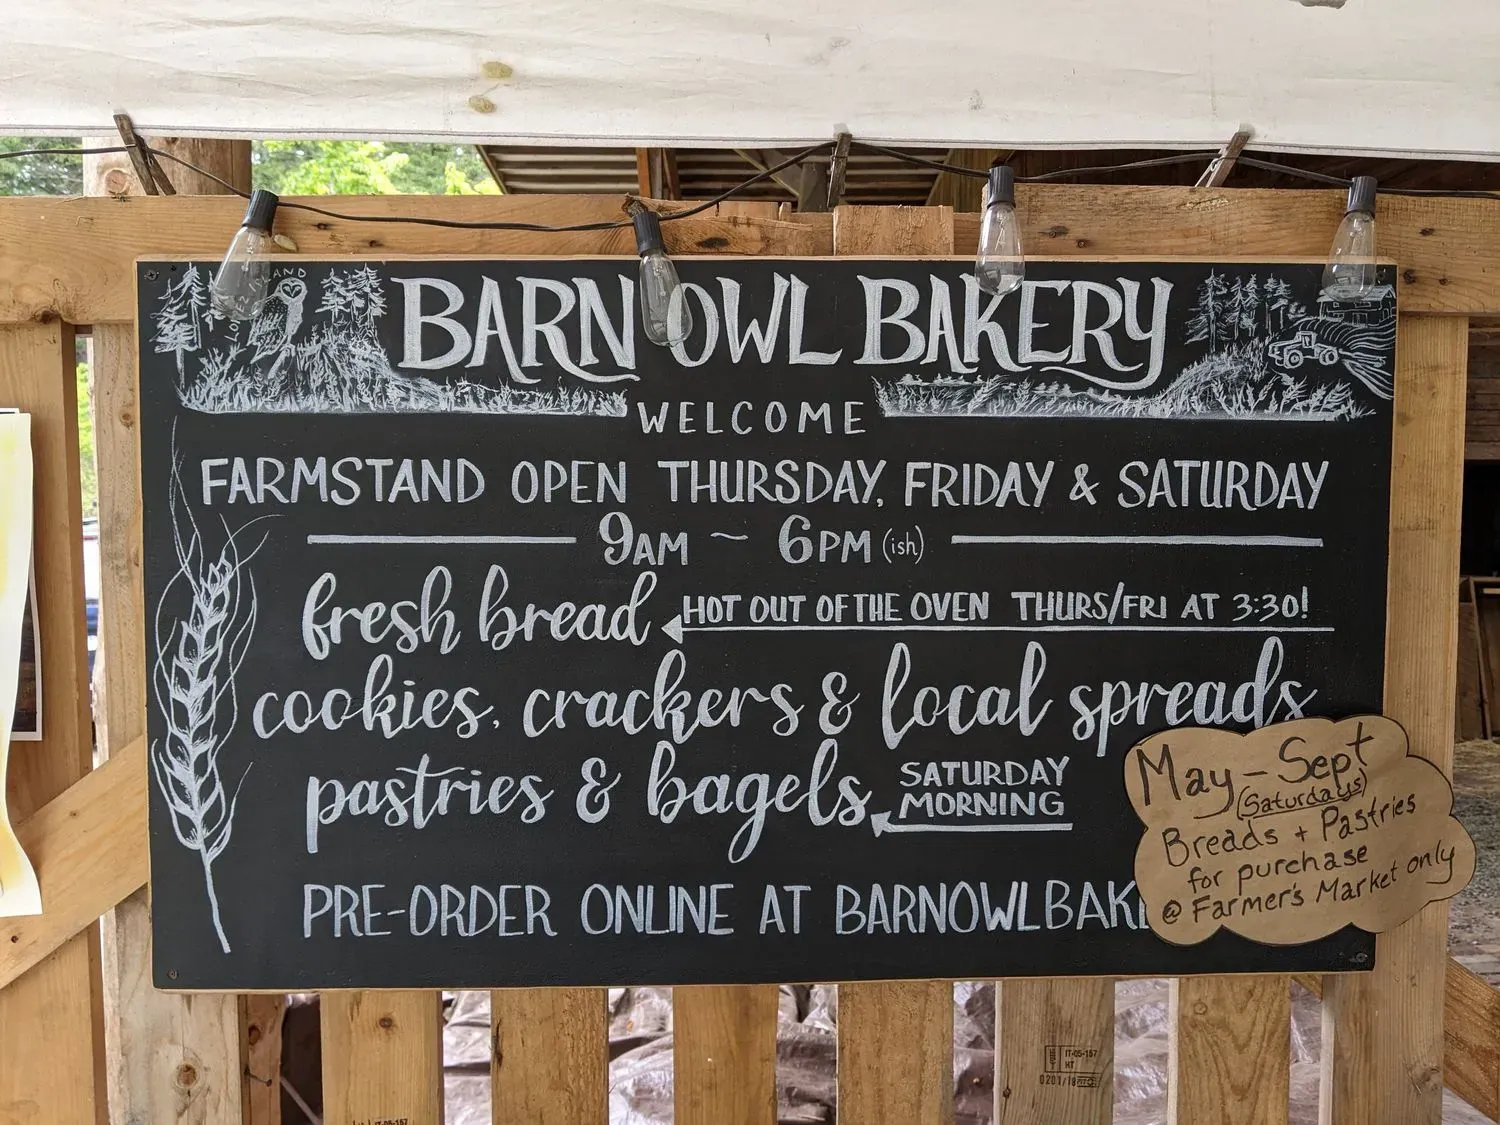 BARN OWL BAKERY
WELCOME
FARMSTAND OPEN THURSDAY, FRIDAY & SATURDAY
9AM ~ 6PM (ish)
fresh bread HOT OUT OF THE OVEN THURS/FRI AT 3:30!
cookies, crackers & local spreads
pastries & bagels SATURDAY
MORNING
PRE-ORDER ONLINE AT BARNOWLBAKE
May - Sept
(Saturdays)
Breads + Pastries
for purchase
@ Farmer's Market only
IT-05-157
HT